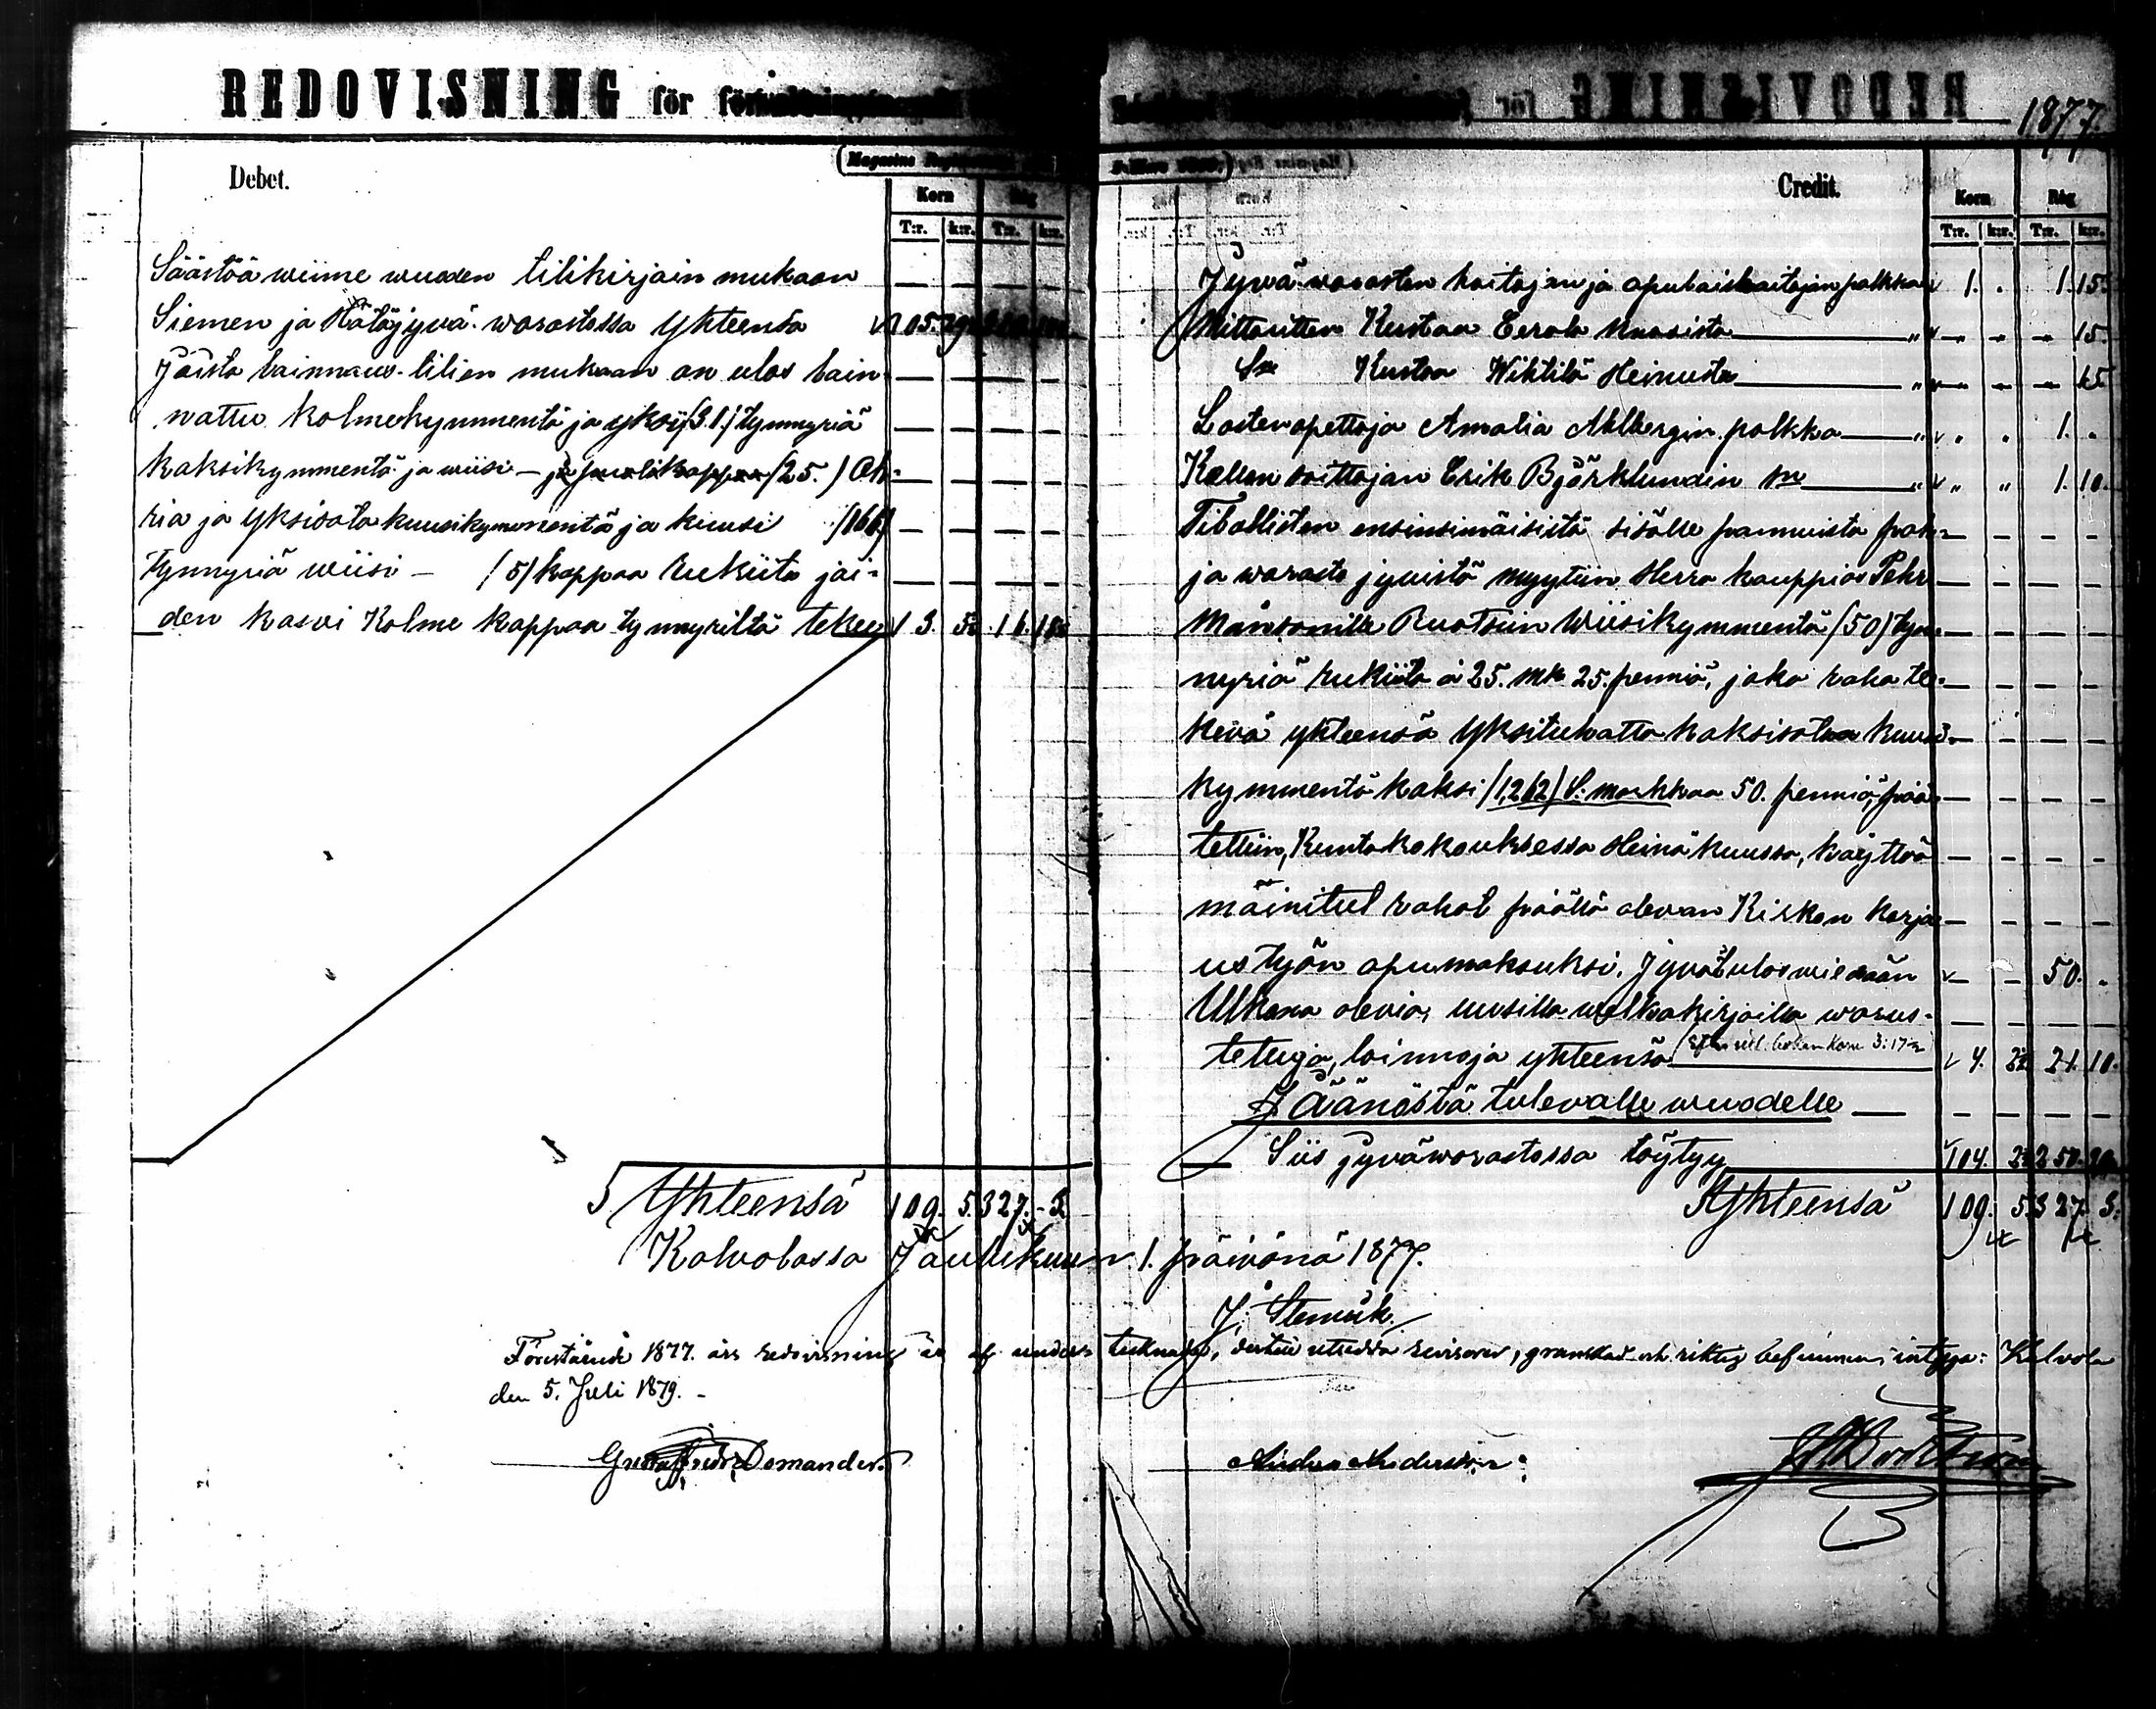 REDOVISNING för
1877.
Debet.
Korn Råg
T:r. k:r. T:r. k:r.
Säästöä wiime wuoden tilikirjain mukaan
Siemen ja Hätäjywä-warastossa Yhteensä 105.
Joista lainnaus-tilien mukaan on ulos lain-
nattu kolmekymmentä ja yksi /31/ tynnyriä
kaksikymmentä ja wiisi — /25./ Oh-
ria ja Yksisata kuusikymmentä ja kuusi /166/
Tynnyriä wiisi — /5/ kappaa Rukiita joi-
den kaswi Kolme kappaa tynnyriltä tekee 3.
Yhteensä 109. 5. 327. - 3.
Credit.
Korn Råg
T:r. k:r. T:r. k:r.
Jywä-waraston hoitajan ja apulaishoitajan palkka 1. . 1. 15.
Mittaritten Kustaa Eerola Kaasista " - - - 15.
Sm Kustaa Wiktilä Heinusta " - - - 15.
Lastenopettaja Amalia Ahlbergin palkka " " " 1. "
Kellon soittajan Erik Björklundin Sm " " " 1. 10.
Tilallisten ensinsimäisistä sisälle pannuista poh-
ja warasto jywistä myytiin Herra kauppias Pehr
Månsonille Ruotsiin Wiisikymmentä /50/ tyn-
nyriä rukiita á 25. mk 25. penniä, joka raha te-
kewä yhteensä Yksituhatta kaksisataa kuusi-
kymmentä kaksi /1,262/ S: markkaa 50. penniä, pää-
tettiin, Kuntakokouksessa Heinäkuussa, käyttää
mäinitut rahat päällä olevan Kirkon korja
us työn apumaksuksi. Jywät ulos wiedään - - 50. "
Ulkona olevia, uusilla welkakirjoilla warus-
tetuja, lainnoja yhteensä 4. 21. 10.
Jäänöstä tulevalle wuodelle
Siis jywäwarastossa töytyy 104. 250.
Yhteensä 109. 5. 327. 3.
Kalvolassa Joulukuun 1. päivänä 1877.
Förestående 1877. års redovisning är af undertecknade, dertill utsedda revisorer, granskad och riktig befunnen, intyga: Kalvola
den 5. Juli 1879. -
Domander.